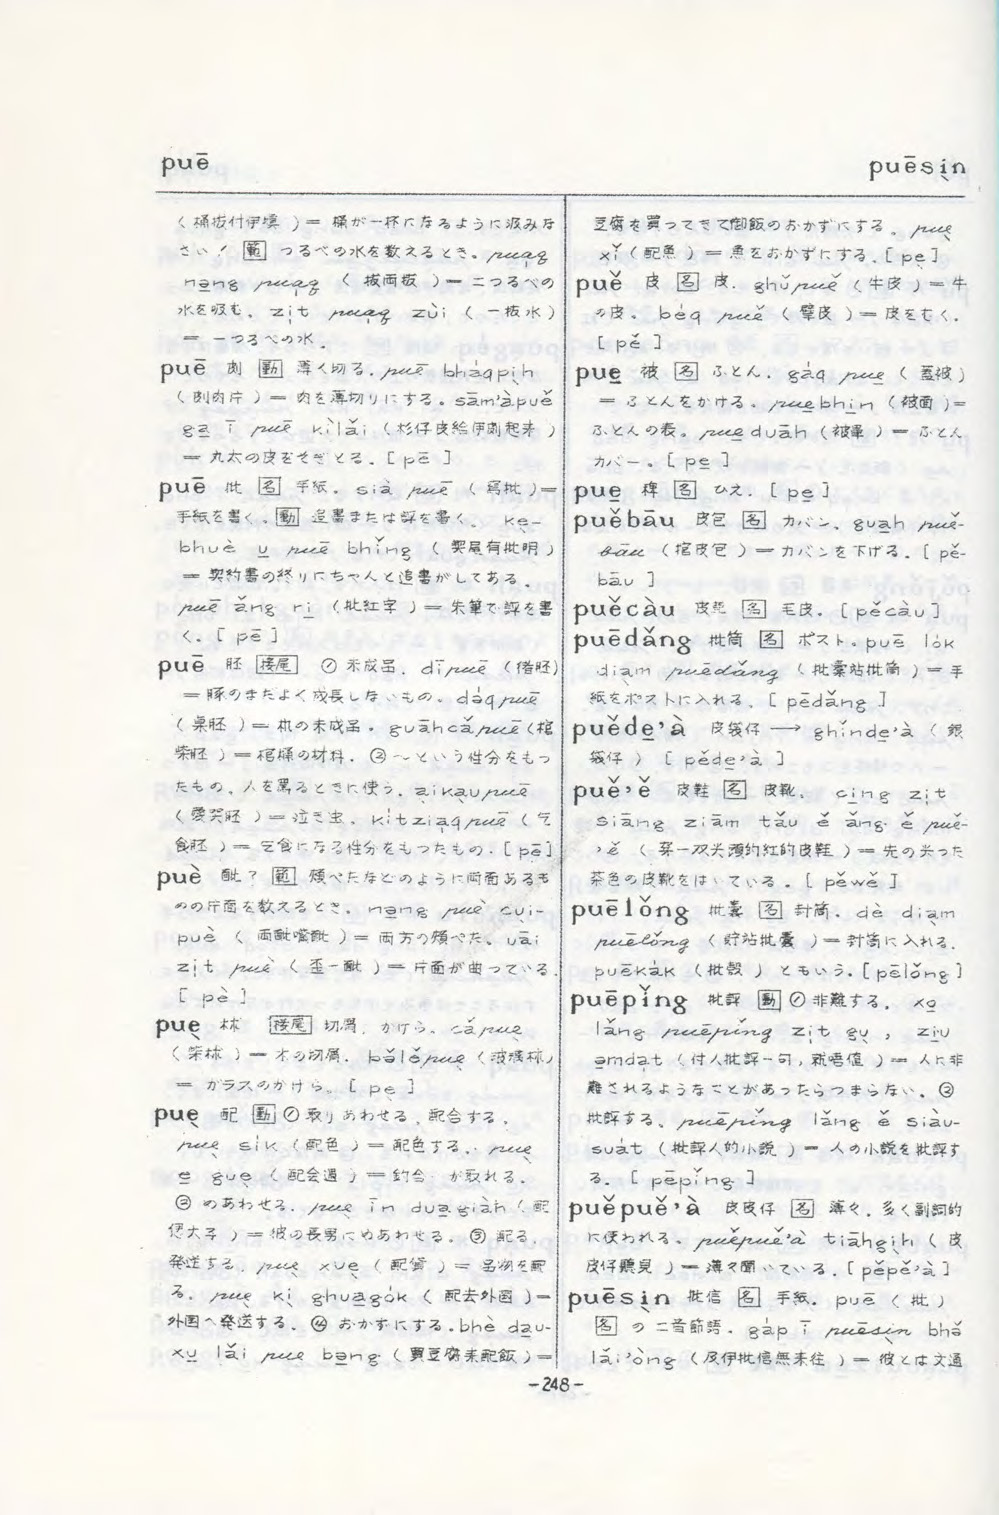 puē
puēsi̱n
（桶抜付伊填）＝ 桶が一杯になるように汲みな
さい！範 つるべの水を数えるとき。puaq
nəng puaq （抜両抜）＝ 二つるべの
水を吸む。zi̍t puaq zùi （一抜水）
＝ 一つるべの水。
puē 剕 動 薄く切る。puē bhàqpi̱h
（肉片）＝ 肉を薄切りにする。sām'àpuě
ga̱ ī puē kìlǎi （杉仔皮給伊起来）
＝ 丸太の皮をそぎとる。[pē]
puē 批 名 手紙。sià puē （寫批）＝
手紙を書く。動 追書または評を書く。ke̱-
bhuè u̱ puē bhǐng （契尾有批明）
＝ 契約書の終りにちゃんと追書がしてある。
puē ǎng ri̱ （批紅字）＝ 朱筆で評を書
く。[pē]
puē 胚 接尾 ① 未成品。dīpuē （猪胚）
＝ 豚のまだよく成長しないもの。dáqpuē
（桌胚）＝ 机の未成品。guāhcǎpuē （棺
柴胚）＝ 棺桶の材料。② 〜という性分をもっ
たもの、人を罵るときに使う。aikaupuē
（愛哭胚）＝ 泣き虫。kitziaqpuē （乞
食胚）＝ 乞食になる性分をもったもの。[pē]
puè ？ 範 頬ぺたなどのように両面あるも
のの片面を数えるとき。nəng puè cui-
puè （両嘴）＝ 両方の頬ぺた。uāi
zi̍t puè （歪一）＝ 片面が曲っている。
[pè]
pue̱ 接尾 切屑、かけら。cǎpue̱
（柴）＝ 木の切屑。bǒlépue̱ （玻璃）
＝ ガラスのかけら。[pe̱]
pue̱ 配 動 ① 取りあわせる、配合する。
pue̱ sík （配色）＝ 配色する。pue̱
e̱ gue̱ （配会過）＝ 釣合が取れる。
② めあわせる。pue̱ īn dua̱giàh （配
大子）＝ 彼の長男にめあわせる。③ 配る、
発送する。pue̱ xue̱ （配貨）＝ 品物を配
る。pue̱ ki̱ ghua̱gók （配去外国）＝
外国へ発送する。④ おかずにする。bhè da̱u-
xu̱ lǎi pue̱ bəng （買豆腐来配飯）＝
豆腐を買ってきて御飯のおかずにする。pue̱
xǐ （配魚）＝ 魚をおかずにする。[pe̱]
puě 皮 名 皮。ghǔpuě （牛皮）＝ 牛
の皮。béq puě （擘皮）＝ 皮をむく。
[pě]
pue̱ 被 名 ふとん。gáq pue̱ （蓋被）
＝ ふとんをかける。pue̱bhin （被面）＝
ふとんの表。pue̱duāh （被單）＝ ふとん
カバー。[pe̱]
pue̱ 稗 名 ひえ。[pe̱]
puěbāu 皮包 名 カバン。guah puě-
bāu （皮包）＝ カバンを下げる。[pě-
bāu]
puěcàu 皮草 名 毛皮。[pěcàu]
puēdǎng 批筒 名 ポスト。puē lók
diam puēdǎng （批站批筒）＝ 手
紙をポストに入れる。[pēdǎng]
puěde̱'à 皮袋仔 → ghǐnde̱'à （銀
袋仔） [pěde̱'à]
puě'ě 皮鞋 名 皮靴。cing zi̍t
siāng ziām tǎu ě ǎng ě puě-
'ě （穿一双尖頭的紅的皮鞋）＝ 先の尖った
茶色の皮靴をはいている。[pěwě]
puēlǒng 批嚢 名 封筒。dè diam
puēlǒng （貯站批嚢）＝ 封筒に入れる。
puēkák （批殼）ともいう。[pēlǒng]
puēpǐng 批評 動 ① 非難する。xo̱
lǎng puēpǐng zi̍t gu̱ , zi̱u
əmdat （付人批評一句，就唔值）＝ 人に非
難されるようなことがあったらつまらない。②
批評する。puēpǐng lǎng ě siàu-
suát （批評人的小説）＝ 人の小説を批評す
る。[pēpǐng]
puěpuě'à 皮皮仔 名 薄々。多く副詞的
に使われる。puěpuě'à tiāhgi̱h （皮
皮仔聽見）＝ 薄々聞いている。[pěpě'à]
puēsi̱n 批信 名 手紙。puē （批）
名 の二音節語。gáp ī puēsi̱n bhǒ
lǎi'òng （及伊批信無来往）＝ 彼とは文通
-248-